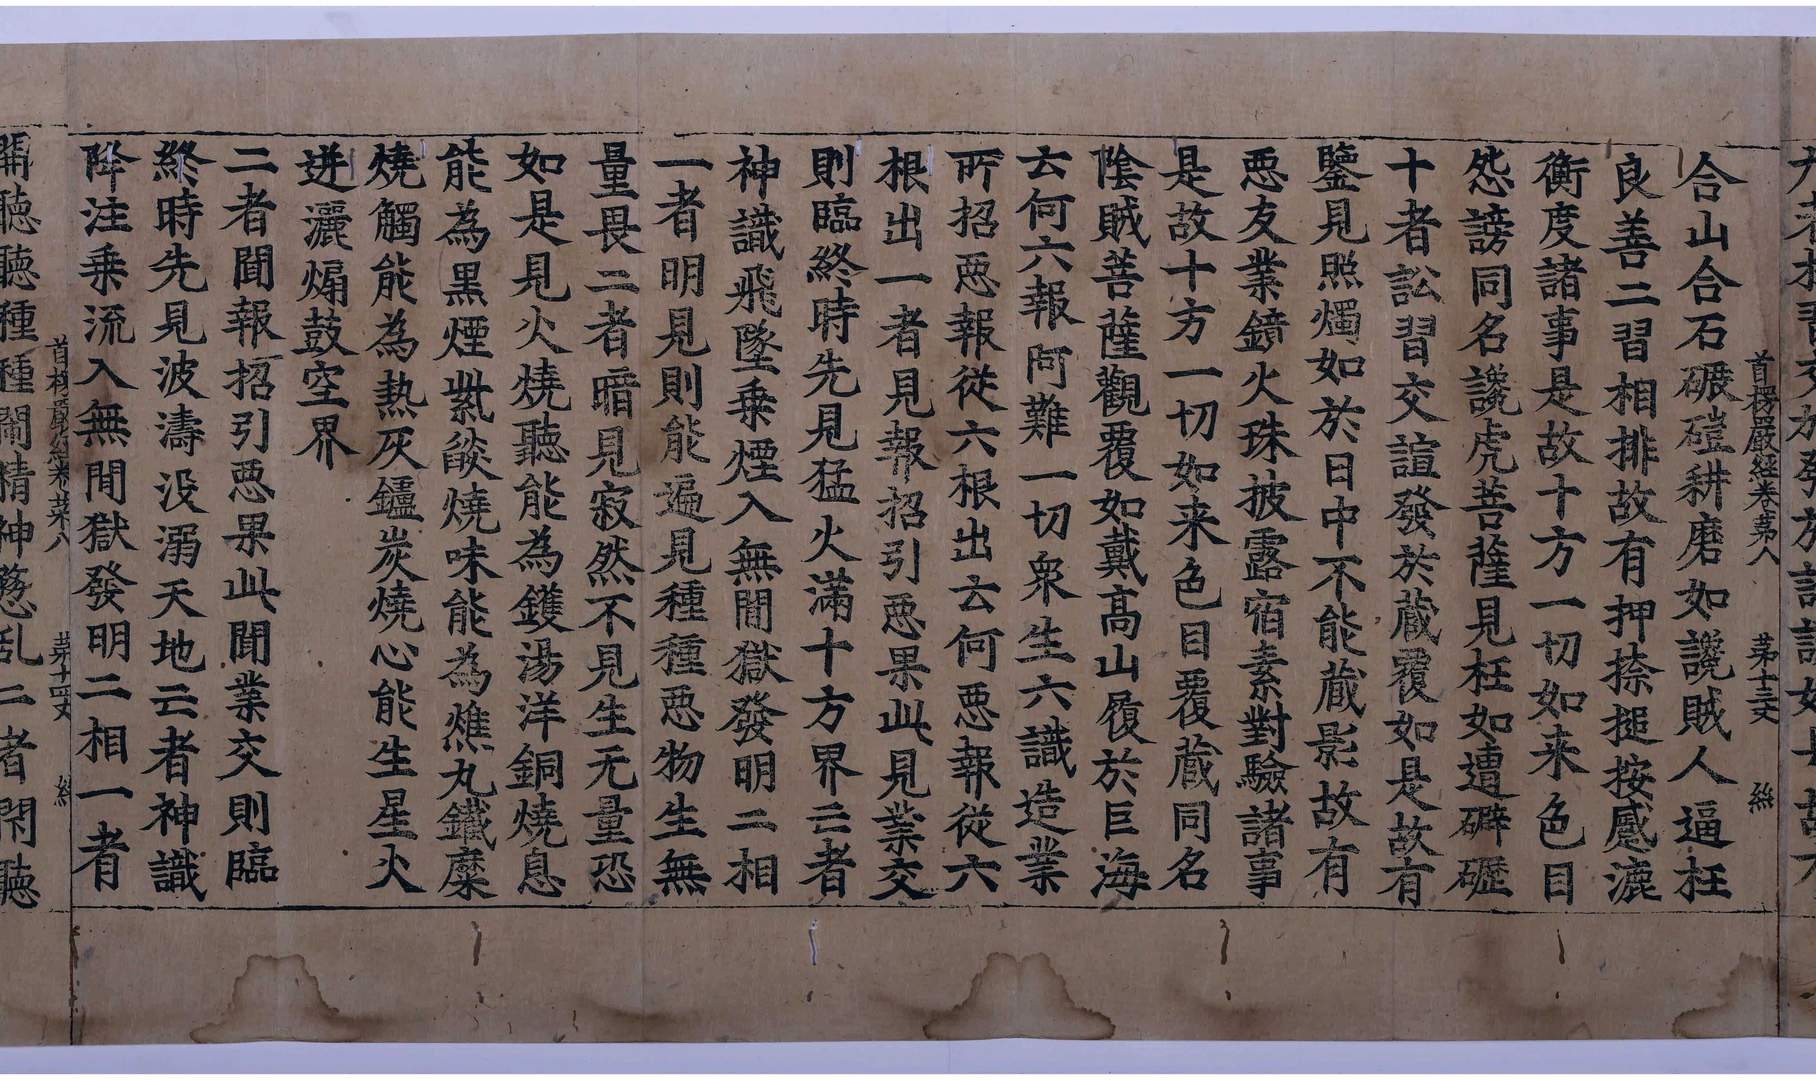 首楞嚴經卷苐八 苐十三丈 絲
合山合石碾磑耕磨如讒賊人逼枉
良善二習相排故有押捺搥按蹙漉
衡度諸事是故十方一切如来色目
怨謗同名讒虎菩薩見枉如遭礔礰
十者訟習交諠發於蔵覆如是故有
鑒見照燭如於日中不能蔵影故有
悪友業鏡火珠披露宿素對驗諸事
是故十方一切如来色目覆蔵同名
陰賊菩薩觀覆如戴高山履於巨海
云何六報阿難一切衆生六識造業
所招悪報從六根出云何悪報從六
根出一者見報招引悪果此見業交
則臨終時先見猛火滿十方界亡者
神識飛墜乗煙入無間獄發明二相
一者明見則能遍見種種悪物生無
量畏二者暗見寂然不見生无量恐
如是見火燒聽能為鑊湯洋銅燒息
能為黒煙紫燄燒味能為燋丸鐵糜
燒觸能為熱灰鑪炭燒心能生星火
迸灑煽鼓空界
二者聞報招引悪果此聞業交則臨
終時先見波濤没溺天地亡者神識
降注乗流入無間獄發明二相一者
首楞嚴經卷苐八 苐十四丈 絲
開聽聽種種鬧精神愗乱二者閉聽